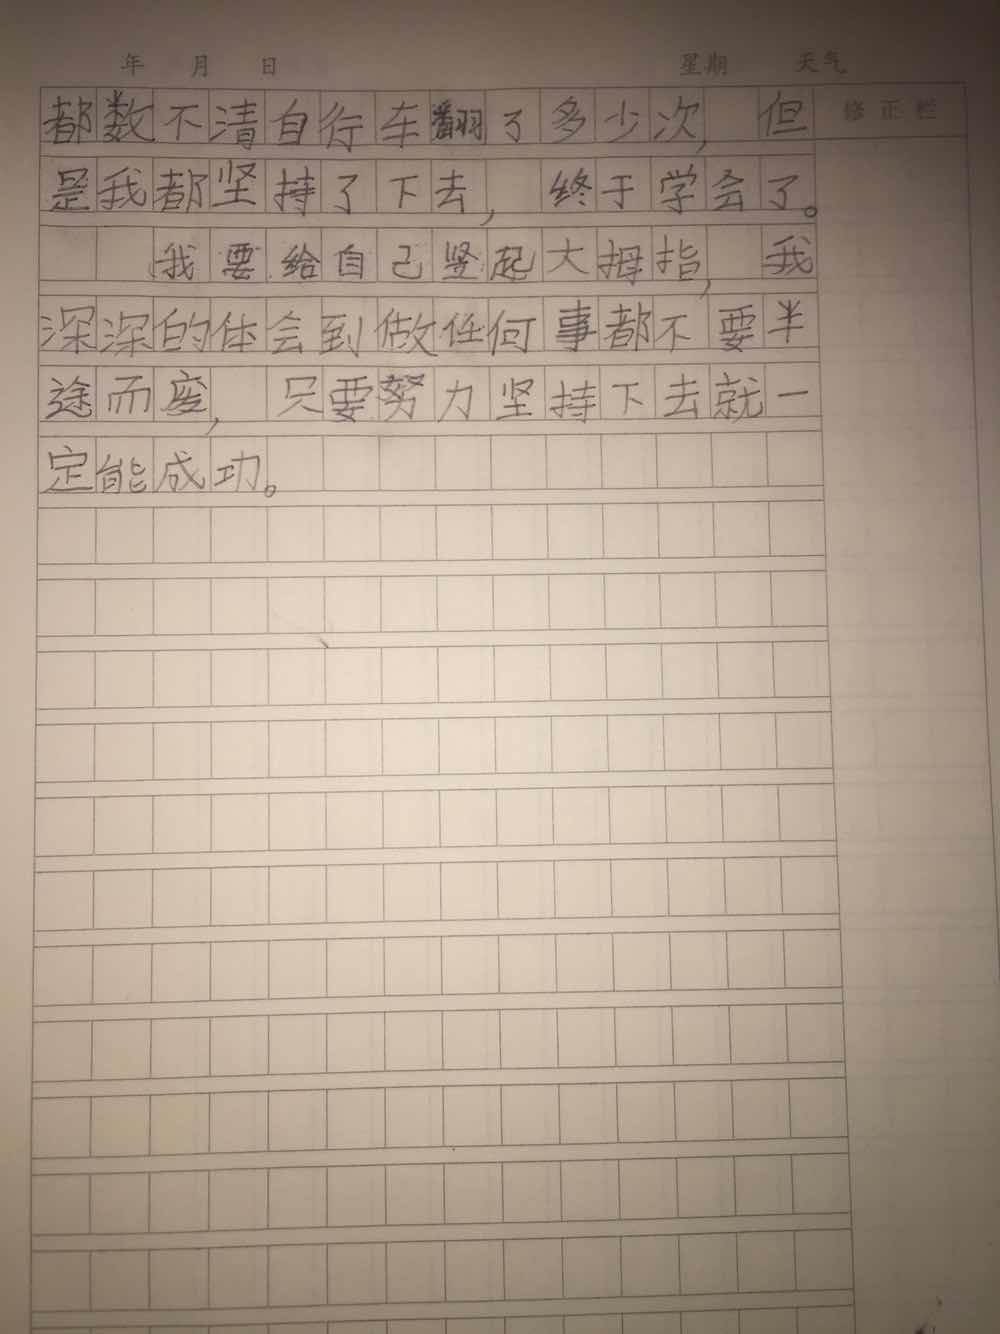 年 月 日 星期 天气
修正栏
都数不清自行车翻了多少次,但
是我都坚持了下去,终于学会了。
我要给自己竖起大拇指,我
深深的体会到做任何事都不要半
途而废,只要努力坚持下去就一
定能成功。